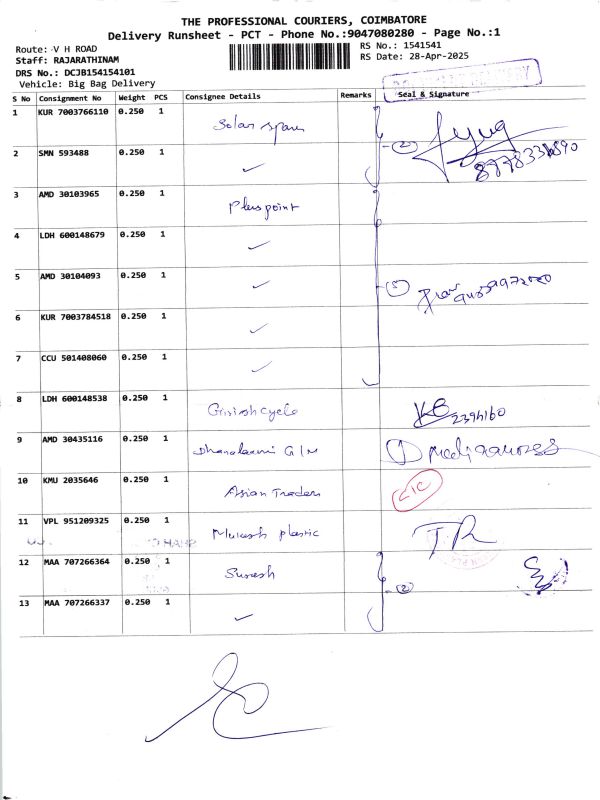 THE PROFESSIONAL COURIERS, COIMBATORE
Delivery Runsheet - PCT - Phone No.:9047080280 - Page No.:1
Route: V H ROAD
Staff: RAJARATHINAM
DRS No.: DCJB154154101
Vehicle: Big Bag Delivery
RS No.: 1541541
RS Date: 28-Apr-2025
S No Consignment No Weight PCS Consignee Details Remarks Seal & Signature
1 KUR 7003766110 0.250 1 Solar spam
2 SMN 593488 0.250 1 ✓ 2
3 AMD 30103965 0.250 1 Pluspoint
4 LDH 600148679 0.250 1 ✓
5 AMD 30104093 0.250 1 ✓ 5
6 KUR 7003784518 0.250 1 ✓
7 CCU 501408060 0.250 1 ✓
8 LDH 600148538 0.250 1 Girish cycle 2394160
9 AMD 30435116 0.250 1 Dhanalaxmi G/M
10 KMU 2035646 0.250 1 Asian Traders
11 VPL 951209325 0.250 1 Mukesh plastic TR
12 MAA 707266364 0.250 1 Suresh 2
13 MAA 707266337 0.250 1 ✓